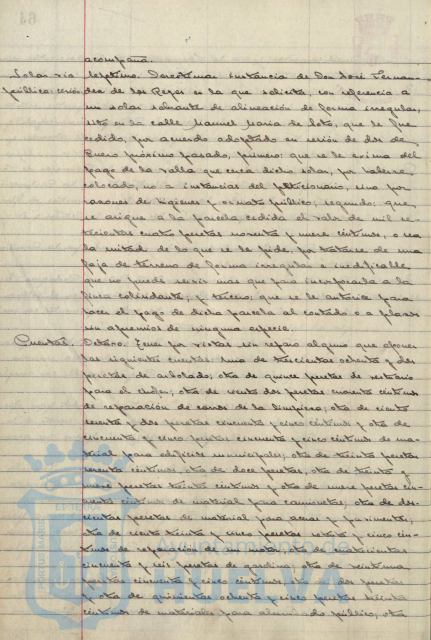 acompaña.
Solar vía Séptimo. Dar cuenta instancia de Don José Fernan-
pública: cesión dez de los Reyes en la que solicita, con referencia a
un solar sobrante de alineación de forma irregular,
sito en la calle Manuel María de Soto, que le fue
cedido, por acuerdo adoptado en sesión de dos de
Enero próximo pasado, primero: que se le exima del
pago de la valla que cerca dicho solar, por haberse
colocado, no a instancias del peticionario, sino por
razones de higiene y ornato público; segundo: que
se asigne a la parcela cedida el valor de mil se-
tecientas cuatro pesetas noventa y nueve céntimos, o sea
la mitad de lo que se le pide, por tratarse de una
faja de terreno de forma irregular e inedificable
que no puede servir mas que para incorporada a la
finca colindante; y tercero, que se le autorice para
hacer el pago de dicha parcela al contado o a plazos
sin apremios de ninguna especie.
Cuentas. Octavo. Tener por vistas sin reparo alguno que oponer
las siguientes cuentas: una de trescientas ochenta y dos
pesetas de arbolado; otra de quince pesetas de vestuario
para el ; otra de ciento dos pesetas cuarenta céntimos
de reparación de carros de la limpieza; otra de ciento
sesenta y dos pesetas cincuenta y cinco céntimos y otra de
cincuenta y cinco pesetas cincuenta y cinco céntimos de ma-
terial para edificios municipales; otra de treinta pesetas
sesenta céntimos, otra de doce pesetas, otra de treinta y
nueve pesetas treinta céntimos y otra de nueve pesetas cin-
cuenta céntimos de material para camionetas; otra de dos-
cientas pesetas de material para aceras y pavimentos;
otra de ciento treinta y cinco pesetas setenta y cinco cén-
timos de reparación de un motor; otra de cuatrocientas
cincuenta y seis pesetas de gasolina; otra de
pesetas cincuenta y cinco céntimos, otra de dos pesetas
y otra de quinientas ochenta y cinco pesetas treinta
céntimos de materiales para alumbrado público, otra